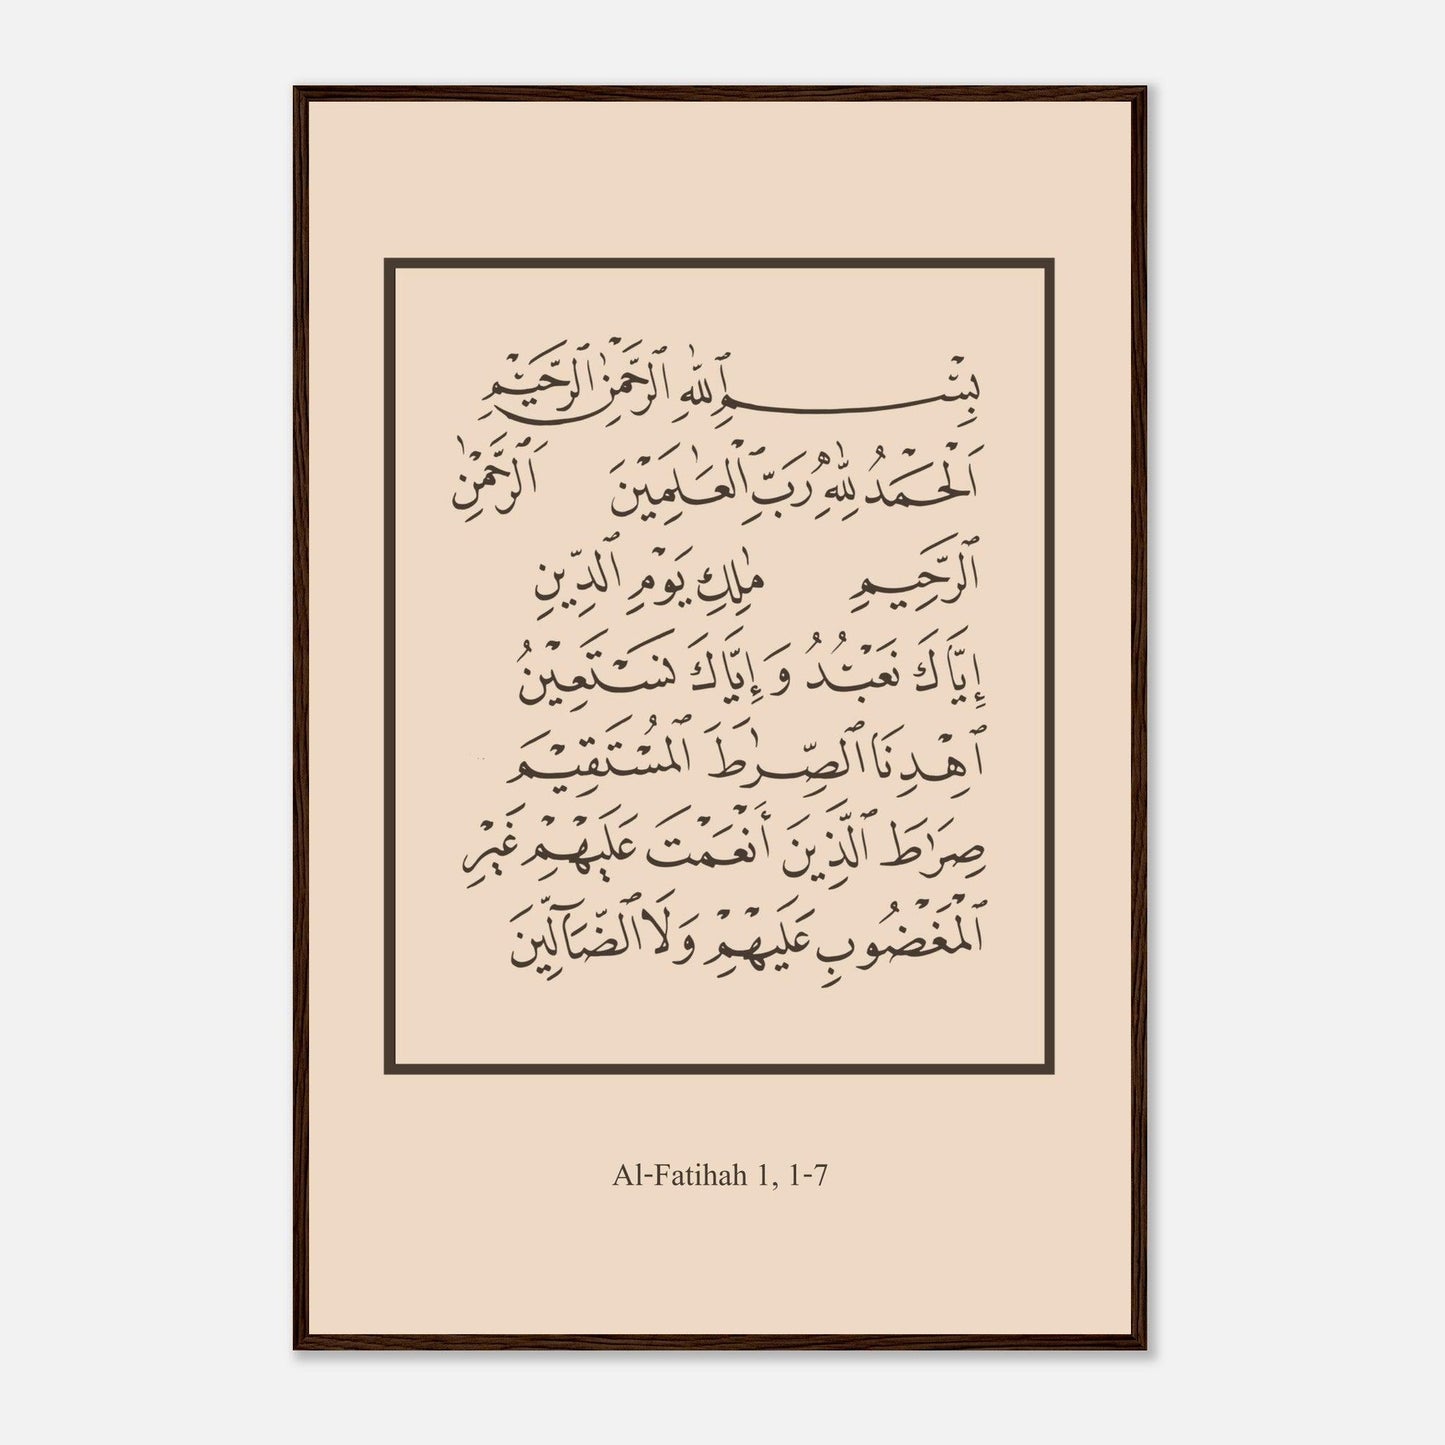 بِسْمِ ٱللَّهِ ٱلرَّحْمَٰنِ ٱلرَّحِيْمِ
اَلْحَمْدُ لِلَّٰهِ رَبِّ ٱلْعَٰلَمِيْنَ اَلرَّحْمَٰنِ
ٱلرَّحِيمِ مَٰلِكِ يَوْمِ ٱلدِّينِ
إِيَّاكَ نَعْبُدُ وَإِيَّاكَ نَسْتَعِيْنُ
ٱهْدِنَا ٱلصِّرَٰطَ ٱلْمُسْتَقِيْمَ
صِرَٰطَ ٱلَّذِينَ أَنْعَمْتَ عَلَيْهِمْ غَيْرِ
ٱلْمَغْضُوبِ عَلَيْهِمْ وَلَا ٱلضَّآلِّيْنَ
Al-Fatihah 1, 1-7